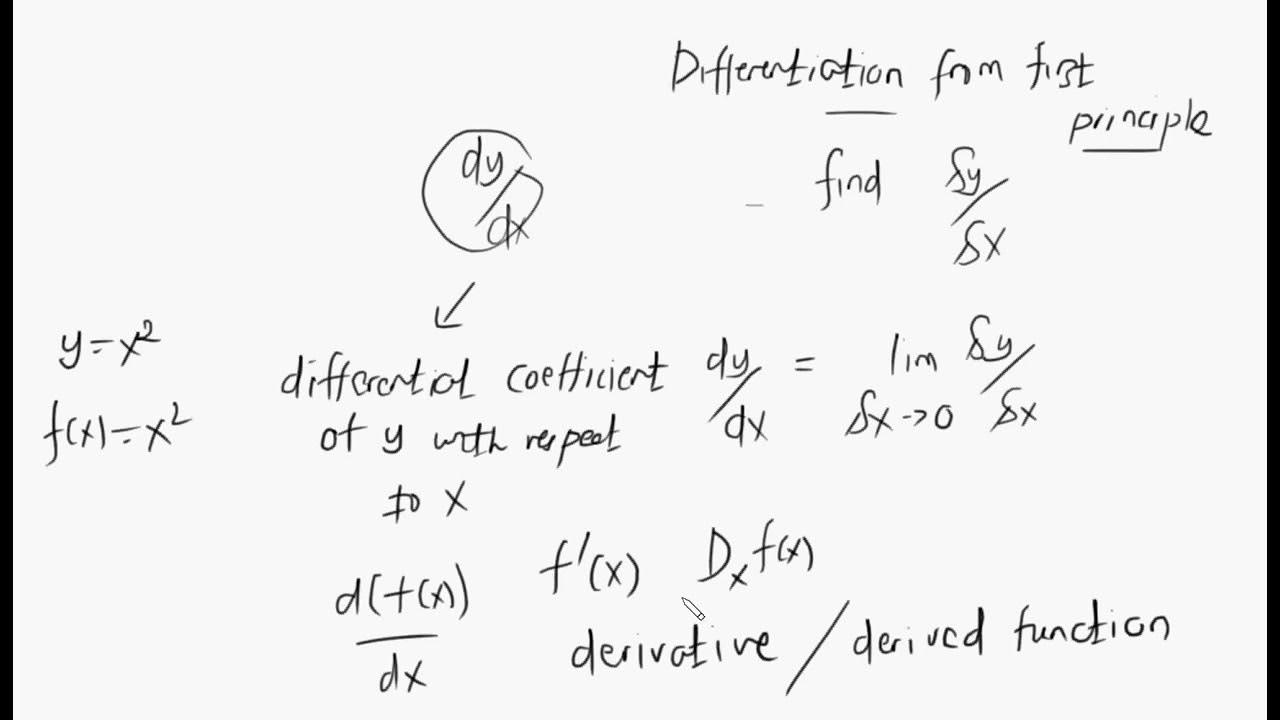 Differentiation from first
principle
dy/dx
find δy/δx
y=x²
f(x)=x²
differential coefficient dy/dx = lim δy/δx
δx→0
of y with respect
to x
d(f(x))
dx
f'(x) Dₓf(x)
derivative / derived function